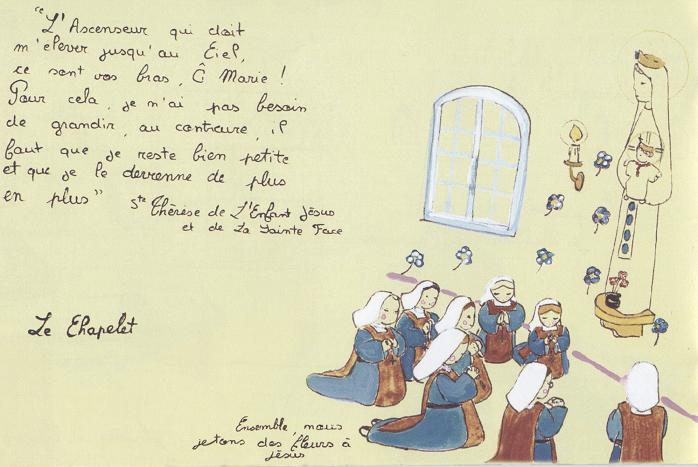 "L'Ascenseur qui doit
m'élever jusqu'au Ciel,
ce sont vos bras, Ô Marie !
Pour cela, je n'ai pas besoin
de grandir, au contraire, il
faut que je reste bien petite
et que je le devrenne de plus
en plus" Ste Thérèse de L'Enfant Jésus
et de La Sainte Face
Le Chapelet
Ensemble, nous
jetons des fleurs à
Jésus